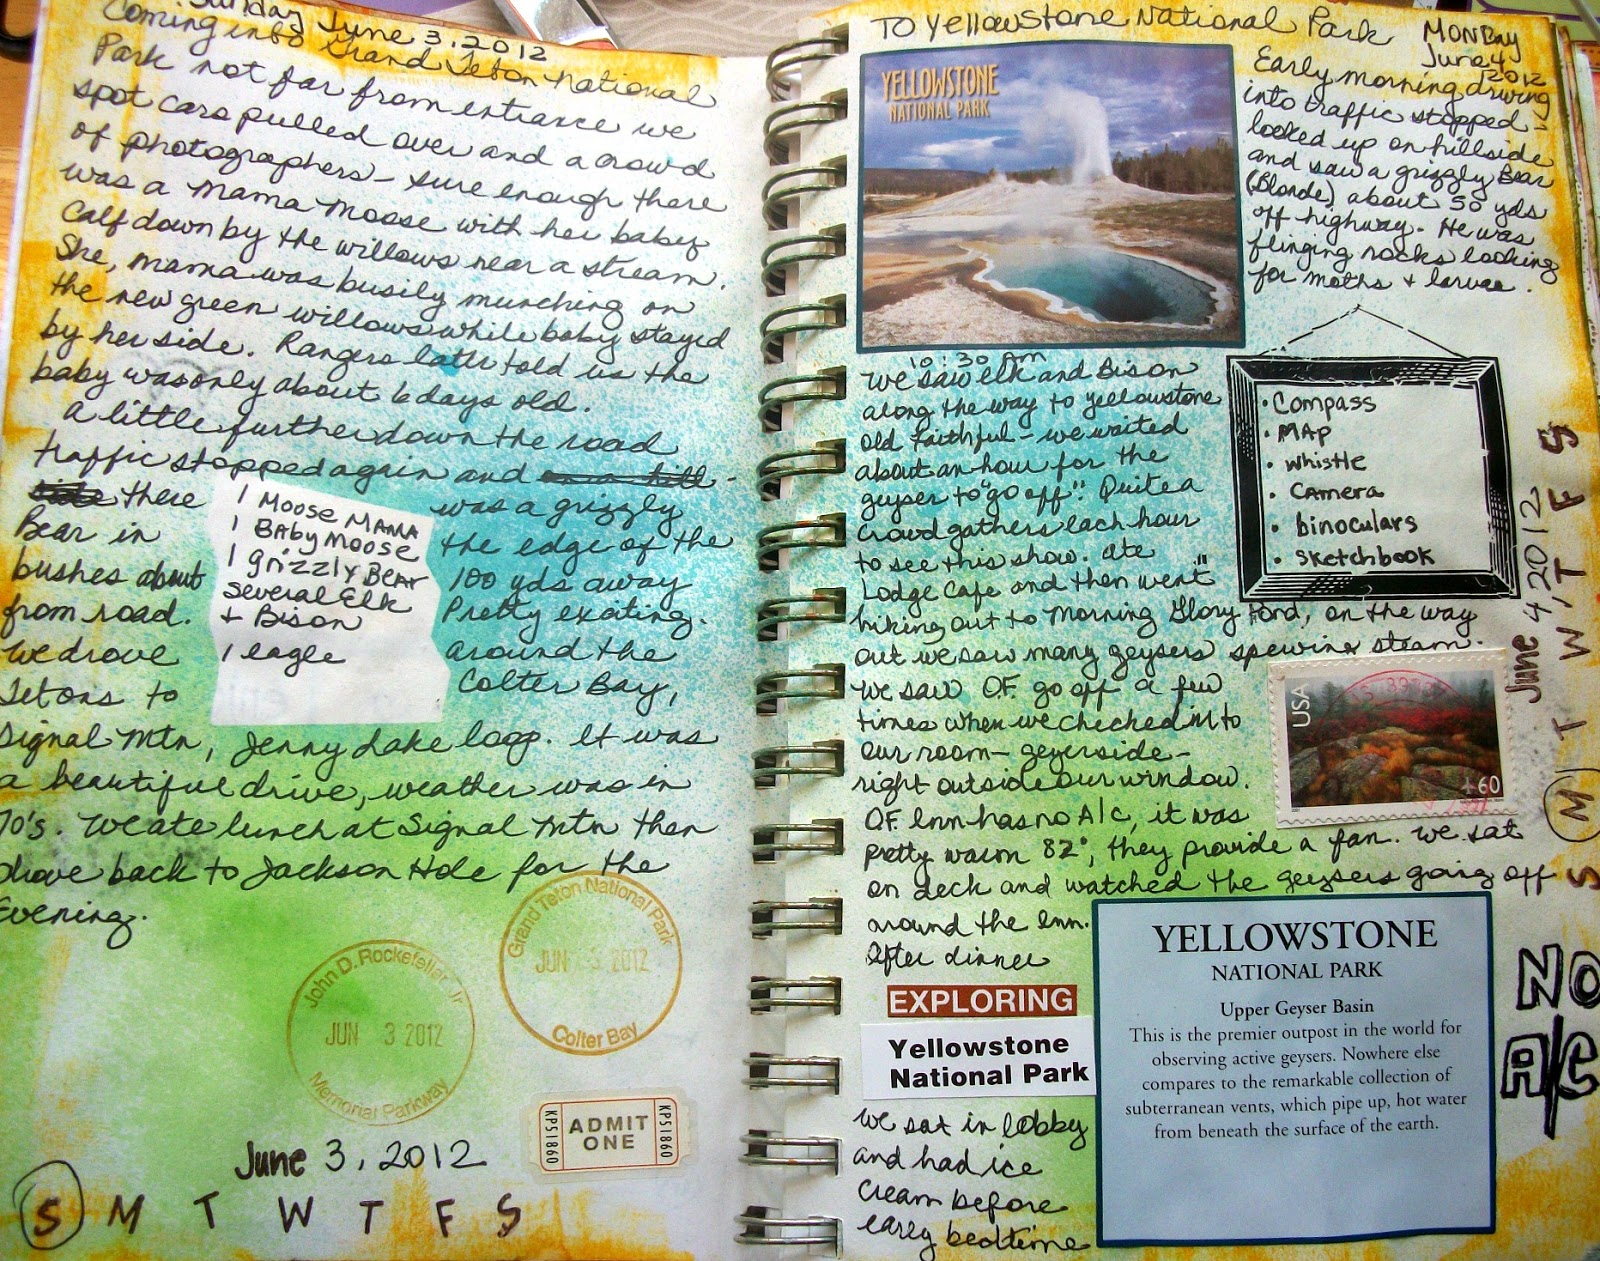 Sunday June 3, 2012
Coming into Grand Teton National
Park not far from entrance we
spot cars pulled over and a crowd
of photographers - sure enough there
was a Mama Moose with her baby
calf down by the willows near a stream.
She, mama was busily munching on
the new green willows while baby stayed
by her side. Rangers later told us the
baby was only about 6 days old.
a little further down the road
traffic stopped again and
there was a grizzly
Bear in the edge of the
bushes about 100 yds away
from road. Pretty exciting.
We drove around the
Tetons to Colter Bay,
Signal Mtn, Jenny Lake loop. It was
a beautiful drive, weather was in
70's. We ate lunch at Signal Mtn then
drove back to Jackson Hole for the
Evening.
1 Moose MAMA
1 BAby Moose
1 grizzly BEAr
Several Elk
+ Bison
1 eagle
John D. Rockefeller Jr
JUN 3 2012
Memorial Parkway
Grand Teton National Park
JUN 3 2012
Colter Bay
KP51860
ADMIT
ONE
KP51860
June 3, 2012
S M T W T F S
TO Yellowstone National Park
MONDay
June 4
2012
YELLOWSTONE
NATIONAL PARK
Early morning driving
into traffic stopped -
looked up on hillside
and saw a grizzly Bear
(Blonde) about 50 yds
off highway. He was
flinging rocks looking
for moths + larvae.
10:30 Am
We saw elk and Bison
along the way to yellowstone
Old Faithful - we waited
about an hour for the
geyser to "go off". Quite a
crowd gathers each hour
to see this show. ate
Lodge Cafe and then went
hiking out to Morning Glory Pond, on the way
out we saw many geysers spewing steam.
We saw O.F. go off a few
times when we checked in to
our room - geyserside -
right outside our window.
O.F. Inn has no A/C, it was
pretty warm 82°, they provide a fan. We sat
on deck and watched the geysers going off
around the Inn.
After dinner
• Compass
• MAP
• whistle
• CAmera
• binoculars
• Sketchbook
USA
+60
June 4, 2012
S M T W T F S
NO
A/C
EXPLORING
Yellowstone
National Park
we sat in lobby
and had ice
cream before
early bedtime
YELLOWSTONE
NATIONAL PARK
Upper Geyser Basin
This is the premier outpost in the world for
observing active geysers. Nowhere else
compares to the remarkable collection of
subterranean vents, which pipe up, hot water
from beneath the surface of the earth.